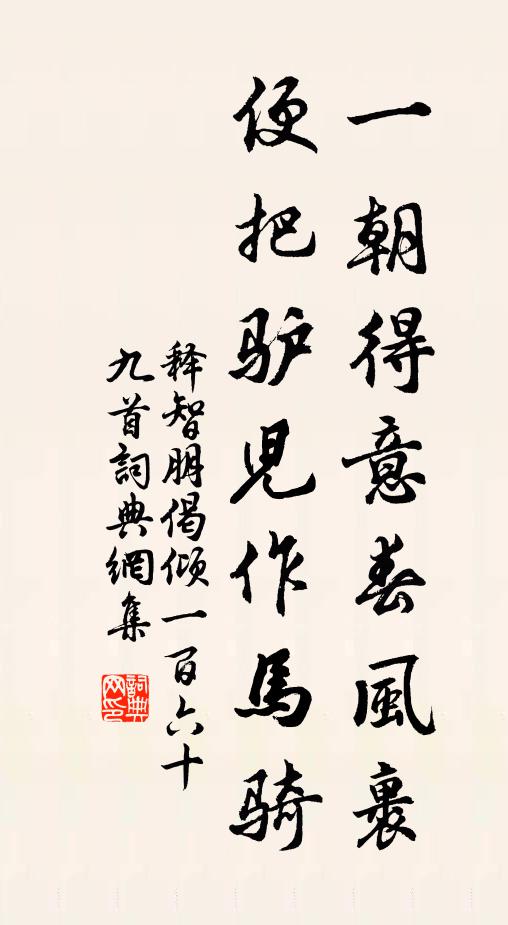 一朝得意春風裏
便把驴児作馬騎
释智朋偈倾一百六十
九首詞典網集
詞典
网印